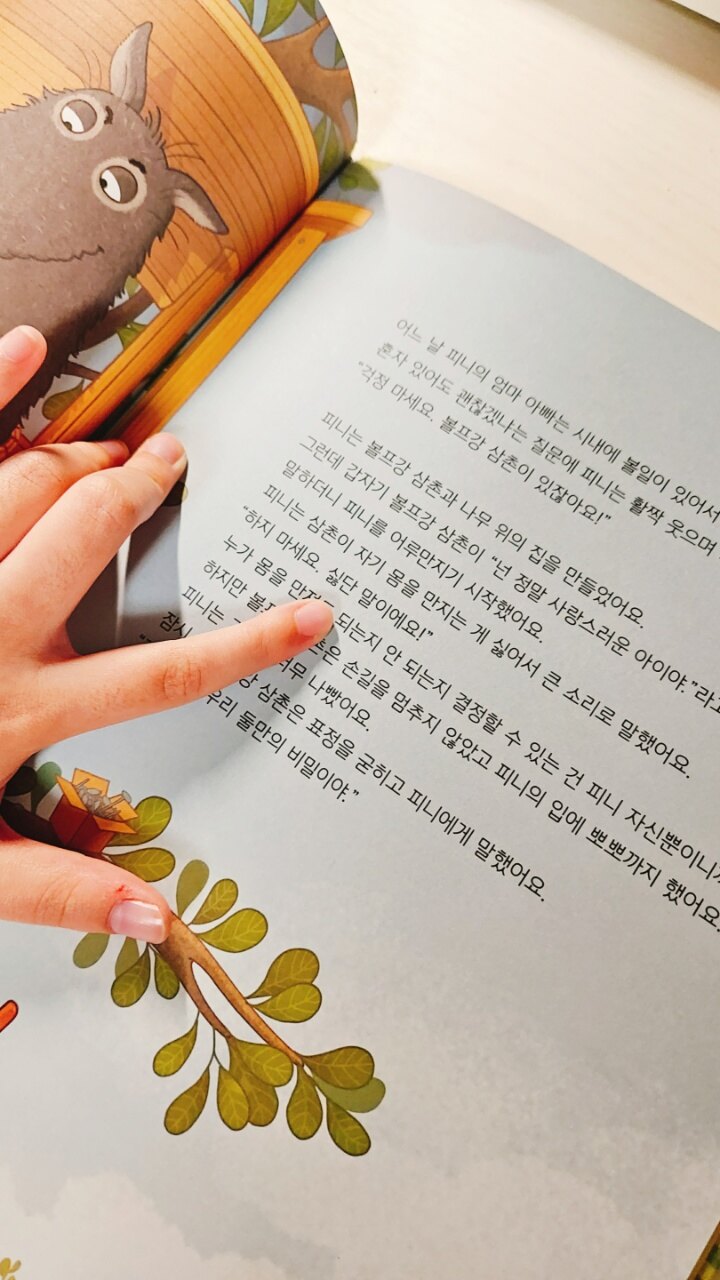 어느 날 피니의 엄마 아빠는 시내에 볼일이 있어서
혼자 있어도 괜찮겠냐는 질문에 피니는 활짝 웃으며
"걱정 마세요. 볼프강 삼촌이 있잖아요!"
피니는 볼프강 삼촌과 나무 위의 집을 만들었어요.
그런데 갑자기 볼프강 삼촌이 "넌 정말 사랑스러운 아이야."라고
말하더니 피니를 어루만지기 시작했어요.
피니는 삼촌이 자기 몸을 만지는 게 싫어서 큰 소리로 말했어요.
"하지 마세요. 싫단 말이에요!"
누가 몸을 만져도 되는지 안 되는지 결정할 수 있는 건 피니 자신뿐이니까
하지만 볼프 은 손길을 멈추지 않았고 피니의 입에 뽀뽀까지 했어요.
피니는 너무 나빴어요.
잠시 강 삼촌은 표정을 굳히고 피니에게 말했어요.
우리 둘만의 비밀이야."